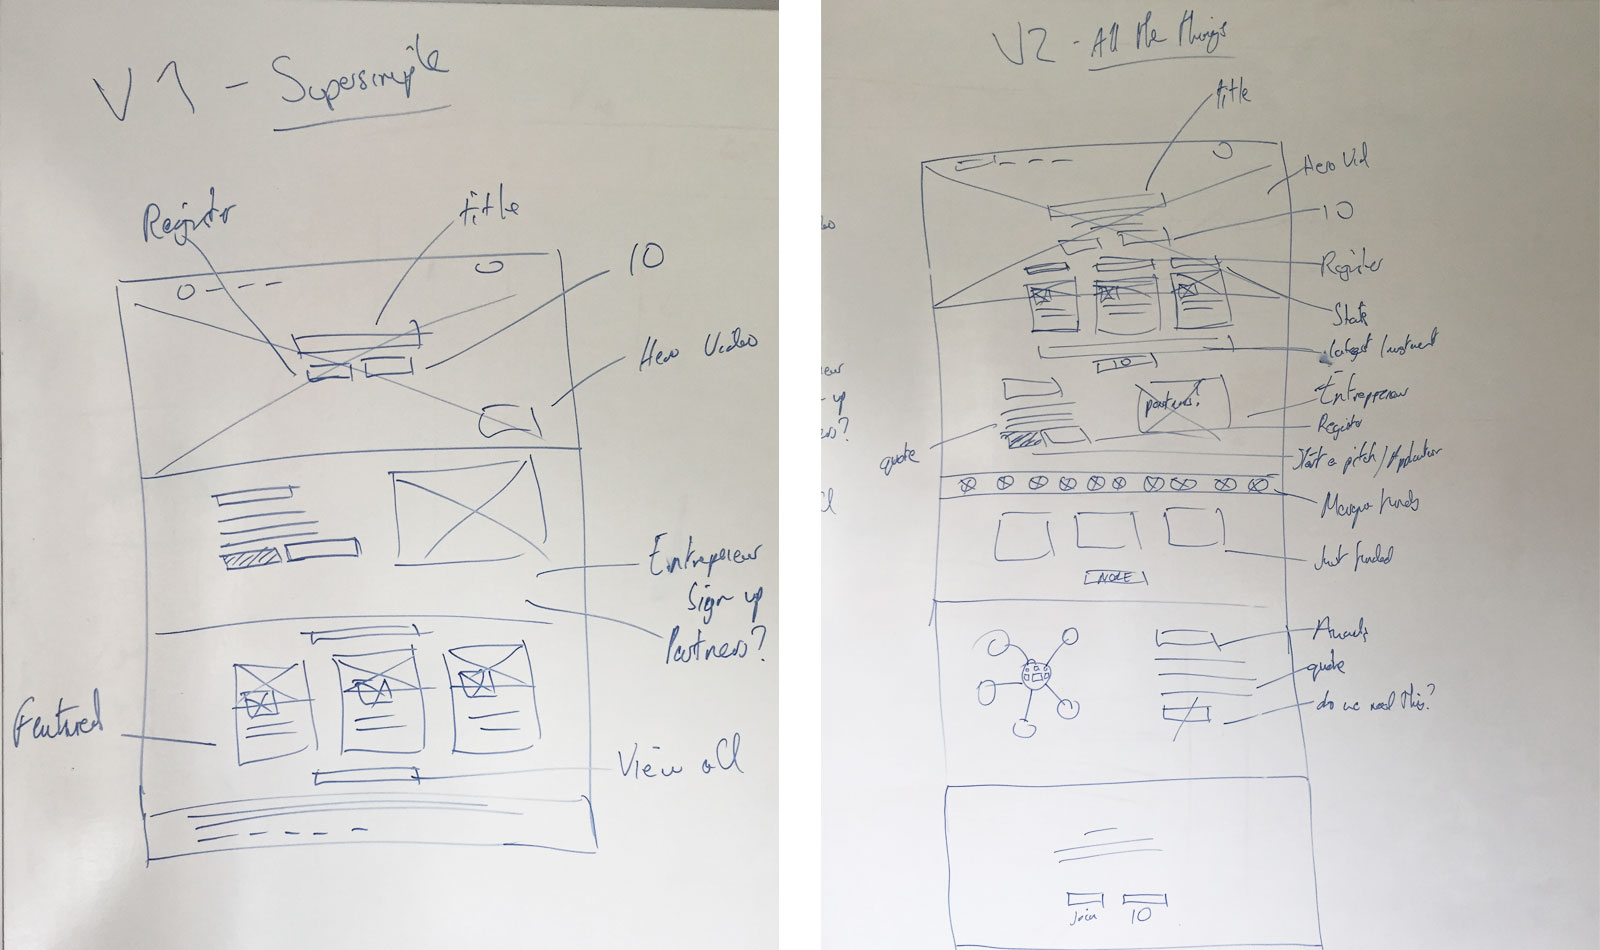 V1 - Supersimple
Register
title
10
Hero Video
Entrepreneur
Sign up
Partners?
Featured
View all
V2 - All the things
title
Hero Vid
10
Register
Stats
latest Investment
10
Entrepreneur
partners?
Register
quote
Start a pitch / Application
funds
Just funded
MORE
quote
do we need this?
Join
10
up
?